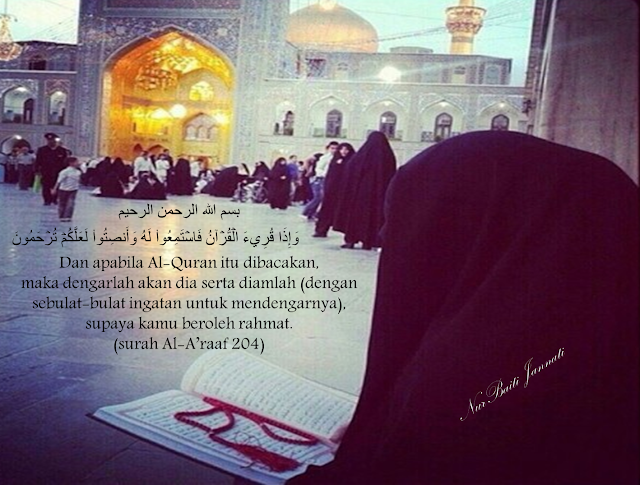 بسم الله الرحمن الرحيم
وَإِذَا قُرِيءَ الْقُرْآنُ فَاسْتَمِعُواْ لَهُ وَأَنصِتُواْ لَعَلَّكُمْ تُرْحَمُونَ
Dan apabila Al-Quran itu dibacakan,
maka dengarlah akan dia serta diamlah (dengan
sebulat-bulat ingatan untuk mendengarnya),
supaya kamu beroleh rahmat.
(surah Al-A'raaf 204)
Nur Baiti Jannati